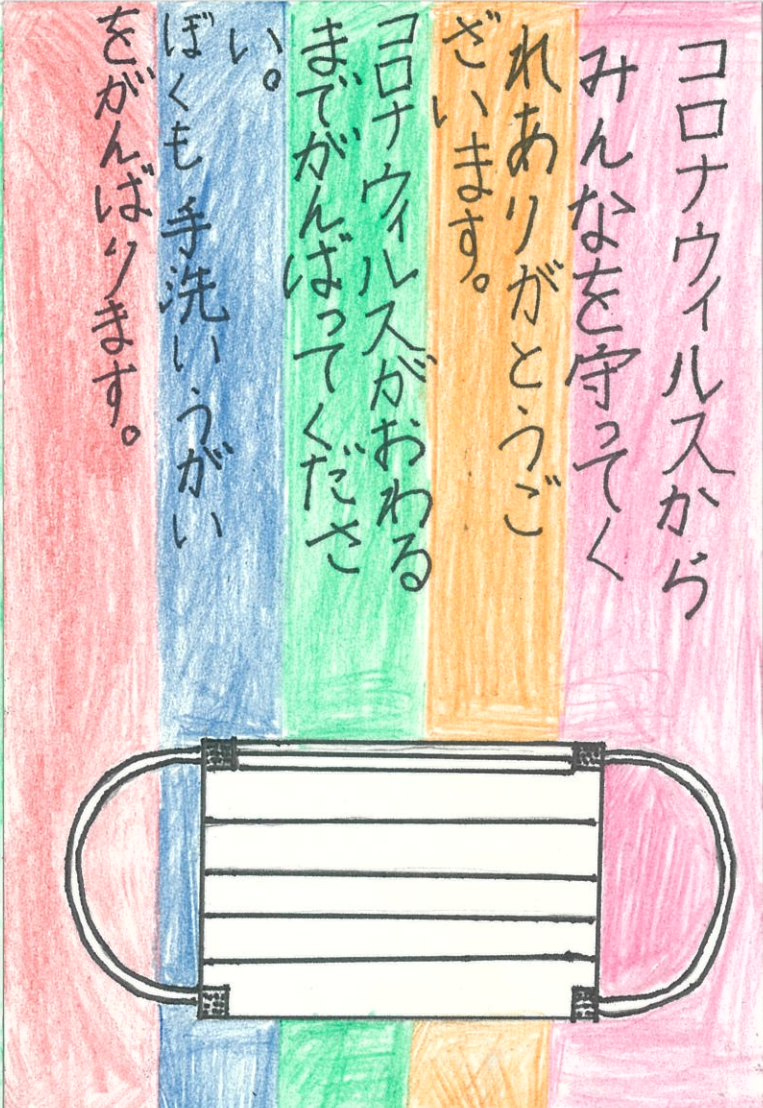 コロナウィルスから
みんなを守ってく
れありがとうご
ざいます。
コロナウィルスがおわる
までがんばってくださ
い。
ぼくも手洗いうがい
をがんばります。